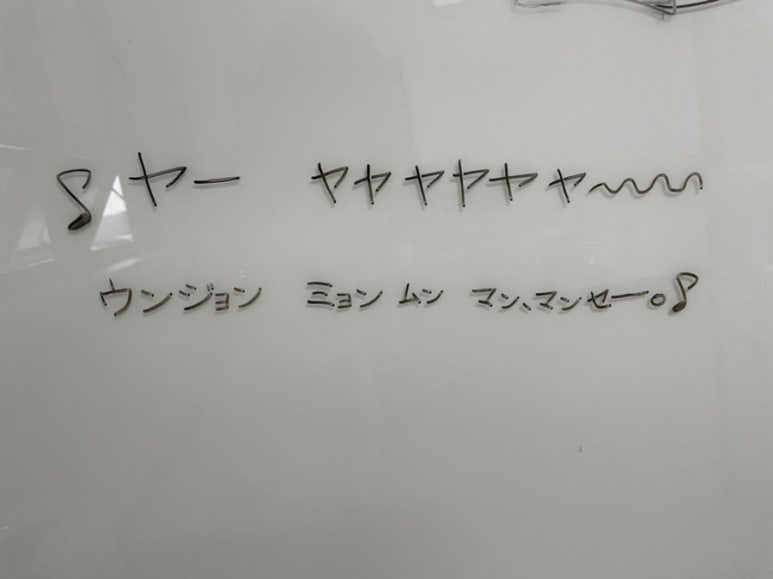 ♪ヤー ヤヤヤヤヤヤ〜〜〜
ウンジョン ミョンムン マン、マンセー。♪